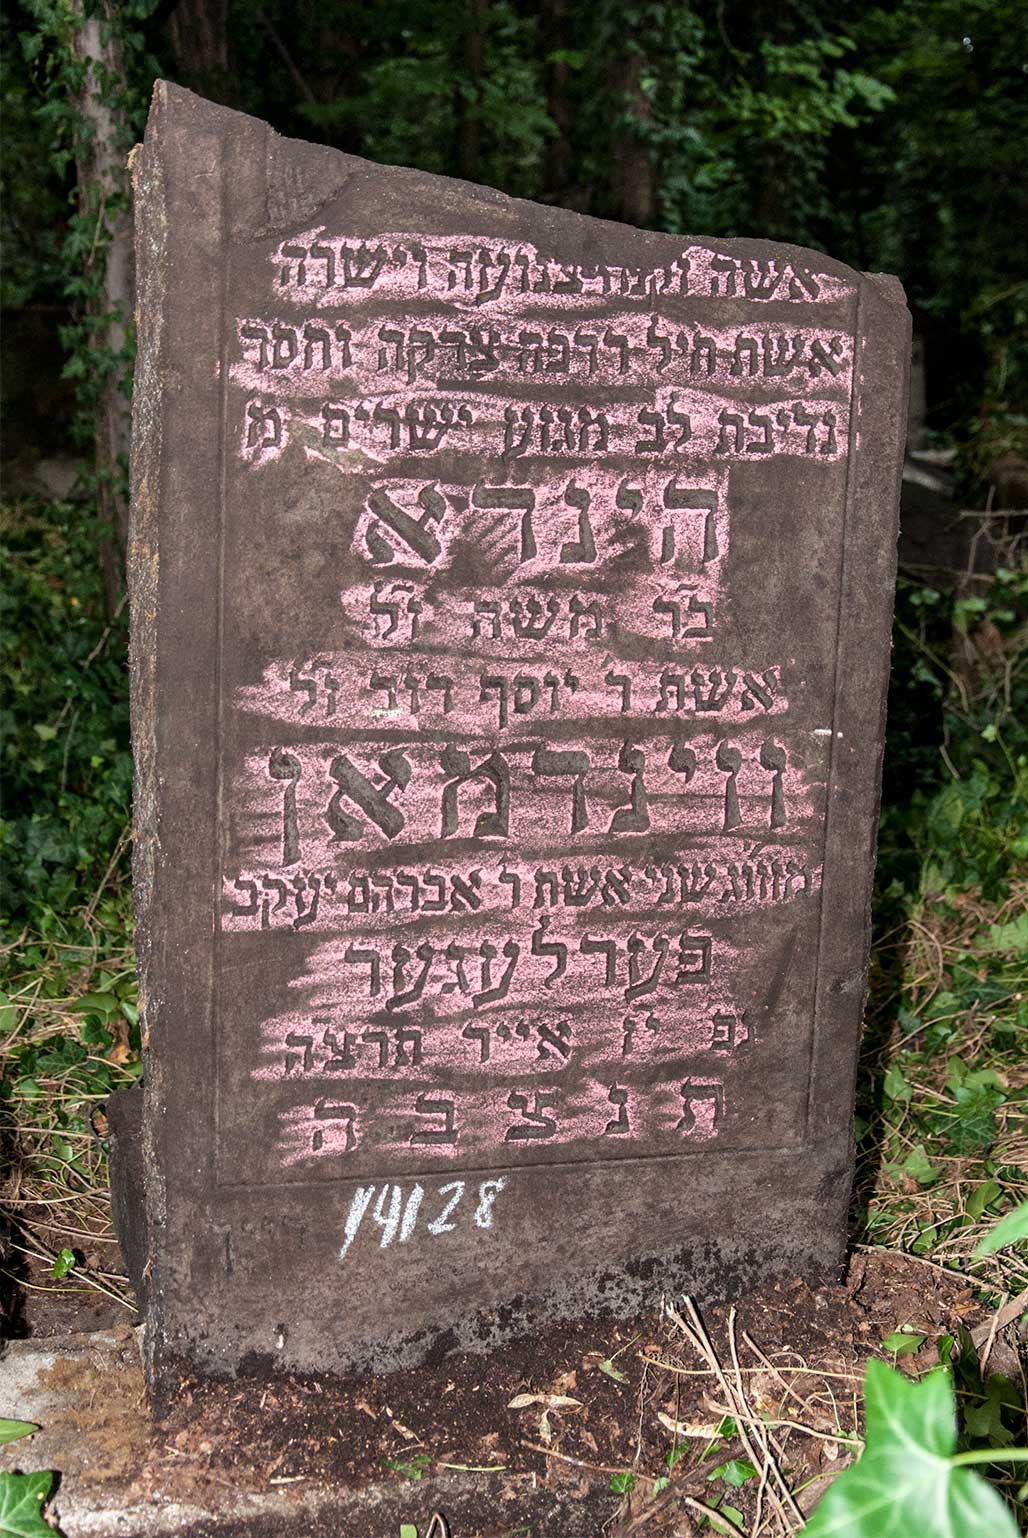 אשה צנועה וישרה
אשת חיל דרכה צדקה וחסד
נדיבת לב מגזע ישרים מ
הינדא
בר משה ז"ל
אשת ר' יוסף דוב ז"ל
ווינדמאן
מזווג שני אשת ר' אברהם יעקב
פערלעגער
נפ' י"ז אייר תרצה
תנצבה
28